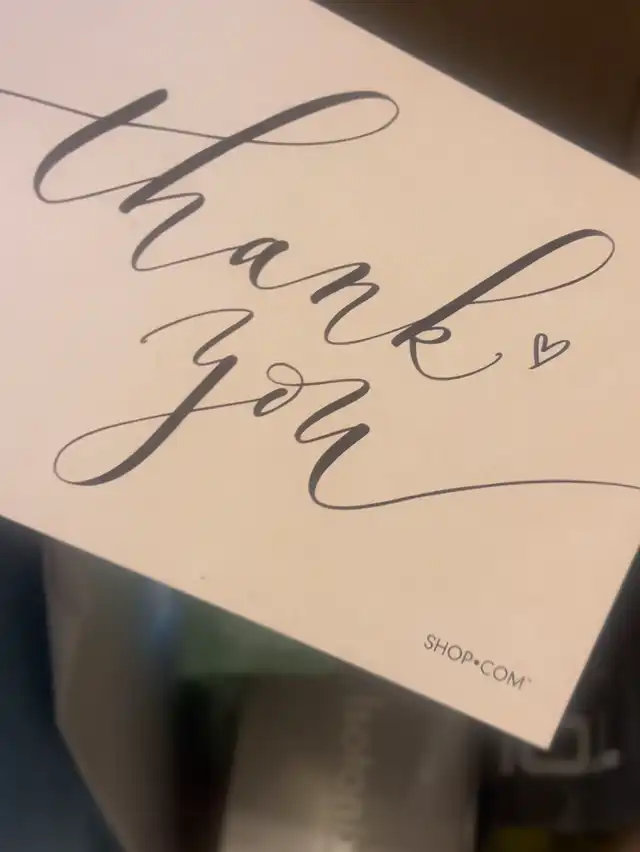 thank
you
SHOP•COM™